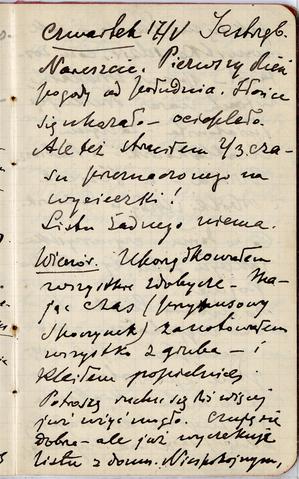 Czwartek 17/V Jastrzęb.
Nareszcie. Pierwszy dzień
pogody od południa. Słońce
się ukazało – ociepliło.
Ale też straciłem 2/3 cza-
su przeznaczonego na
wycieczki!
Listu żadnego niema.
Wieczór. Uporządkowałem
wszystkie zdobycze – Ma-
jąc czas (przymusowy
spoczynek) zanotowałem
wszystko z gruba – i
kleiłem popielnicę.
Potrafię ruszać się
już więc mało. Czuję się
dobrze – ale już wyczekuję
listu z domu. Niespokojnym,